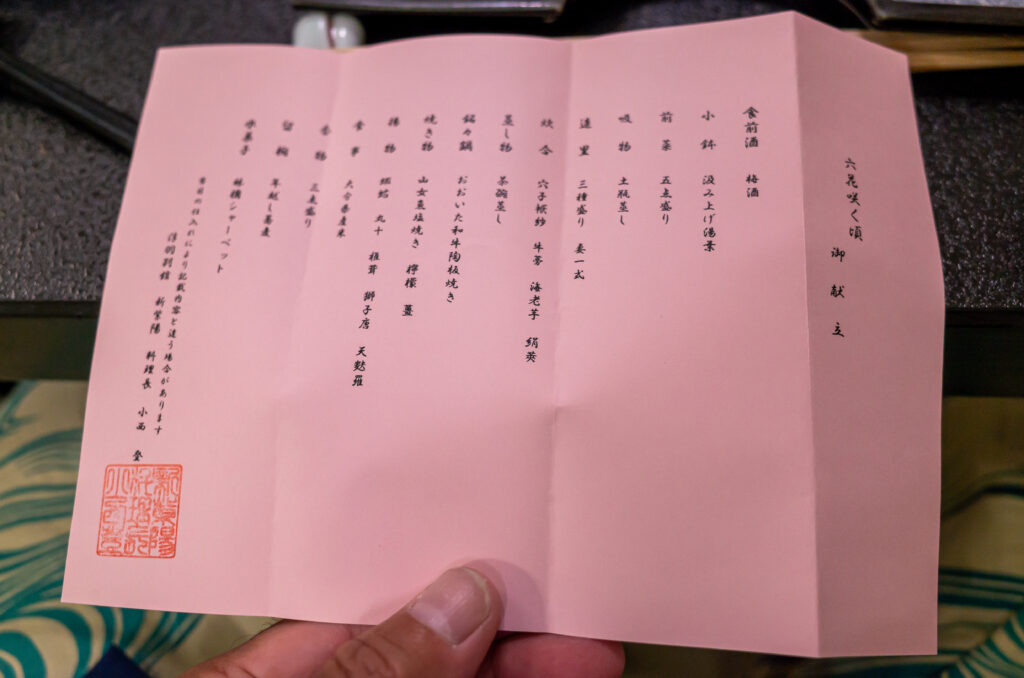 六花咲く頃 御献立
食前酒 梅酒
小鉢 汲み上げ湯葉
前菜 五点盛り
吸物 土瓶蒸し
造里 三種盛り 妻一式
炊合 穴子袱紗 牛蒡 海老芋 絹莢
蒸し物 茶碗蒸し
銘々鍋 おおいた和牛陶板焼き
焼き物 山女魚塩焼き 檸檬 薑
揚物 丸十 椎茸 獅子唐 天麩羅
食事 大分県産米
香物 三点盛り
留椀 年越し蕎麦
水菓子 シャーベット
当日の仕入れにより記載内容と違う場合があります
別館 新紫陽 料理長 小西 登